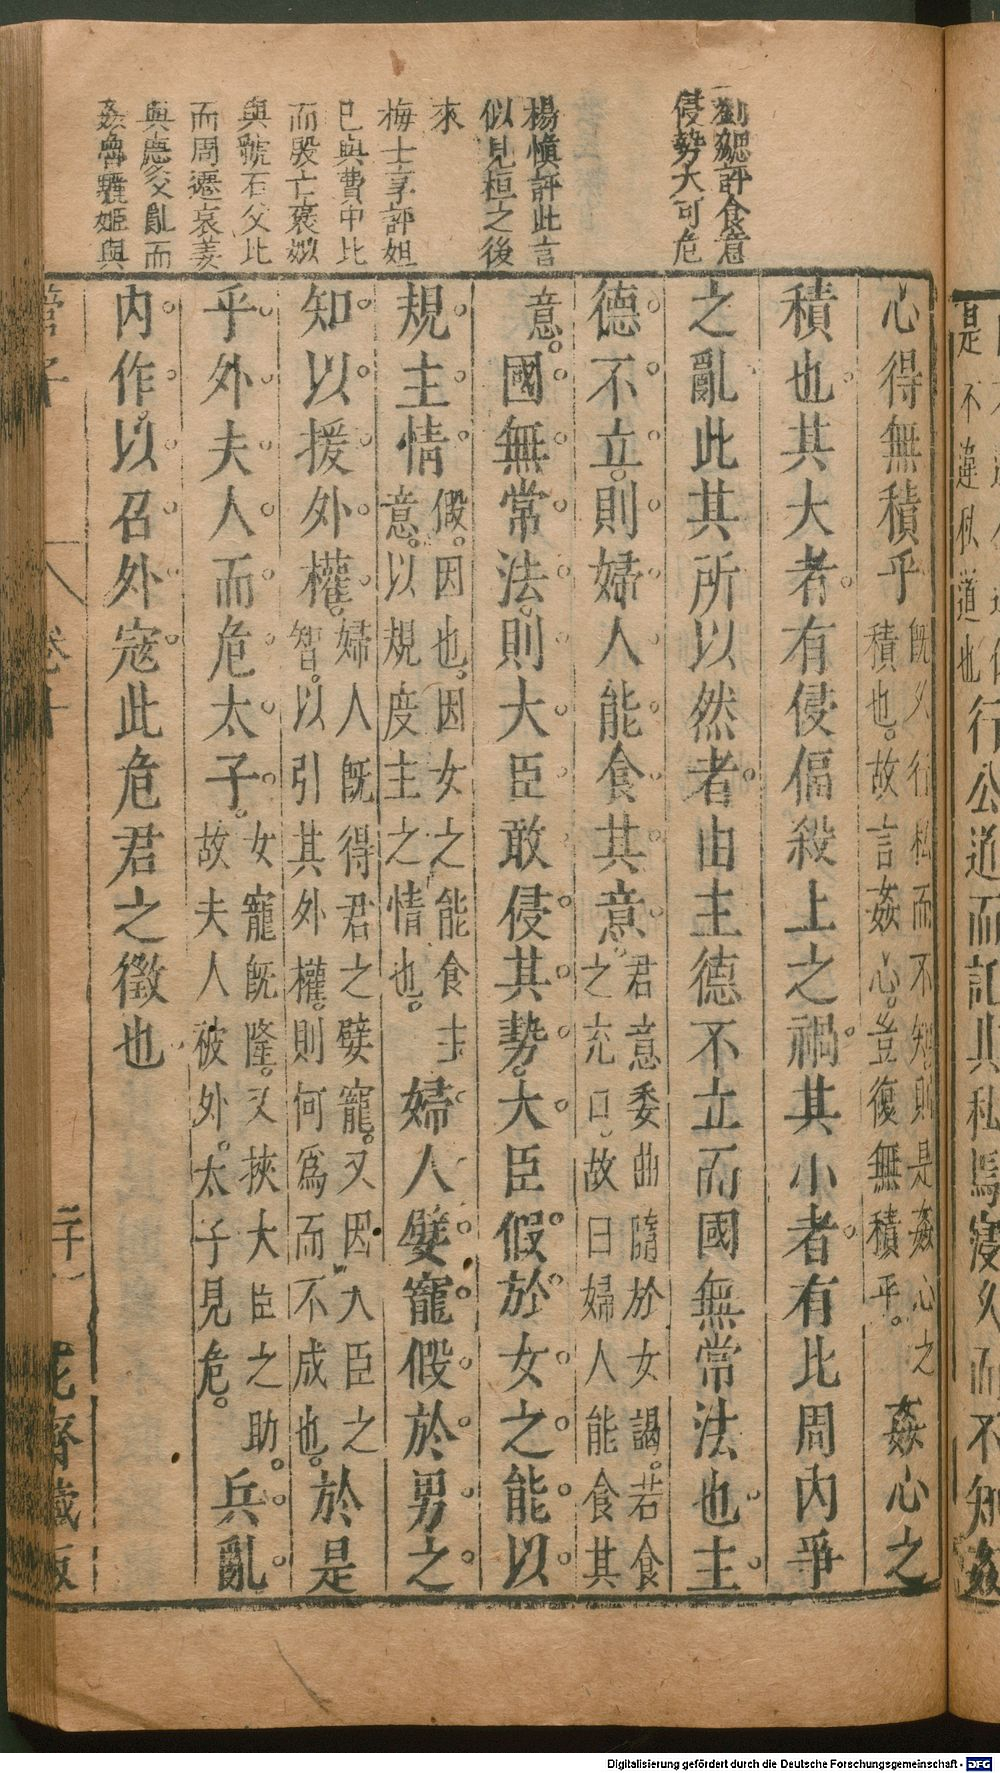 是不違私道也行公道而託其私焉寖久而不知姦
劉勰評食意
侵勢大可危
楊慎評此言
似見桓之後
來
梅士享評妲
已與費中比
而殷亡褒姒
與虢石父比
而周遷哀姜
與慶父亂而
姦魯驪姬與
心得無積乎既久行私而不知。則是姦心之積也。故言姦心。豈復無積乎。姦心之
積也其大者有侵偪殺上之禍其小者有比周內爭
之亂此其所以然者由主德不立而國無常法也主
德不立。則婦人能食其意。君意委曲隨於女謁。若食之充口。故曰婦人能食其
意。國無常法。則大臣敢侵其勢。大臣假於女之能以
規主情假。因也。因女之能食主意。以規度主之情也。婦人嬖寵假於男之
知以援外權。婦人既得君之嬖寵。又因大臣之智。以引其外權。則何爲而不成也。於是
乎外夫人而危太子。女寵既隆。又挾大臣之助。故夫人被外。太子見危。兵亂
內作。以召外寇此危君之徵也
管子 卷十 二十一 花齋藏板
Digitalisierung gefördert durch die Deutsche Forschungsgemeinschaft - DFG